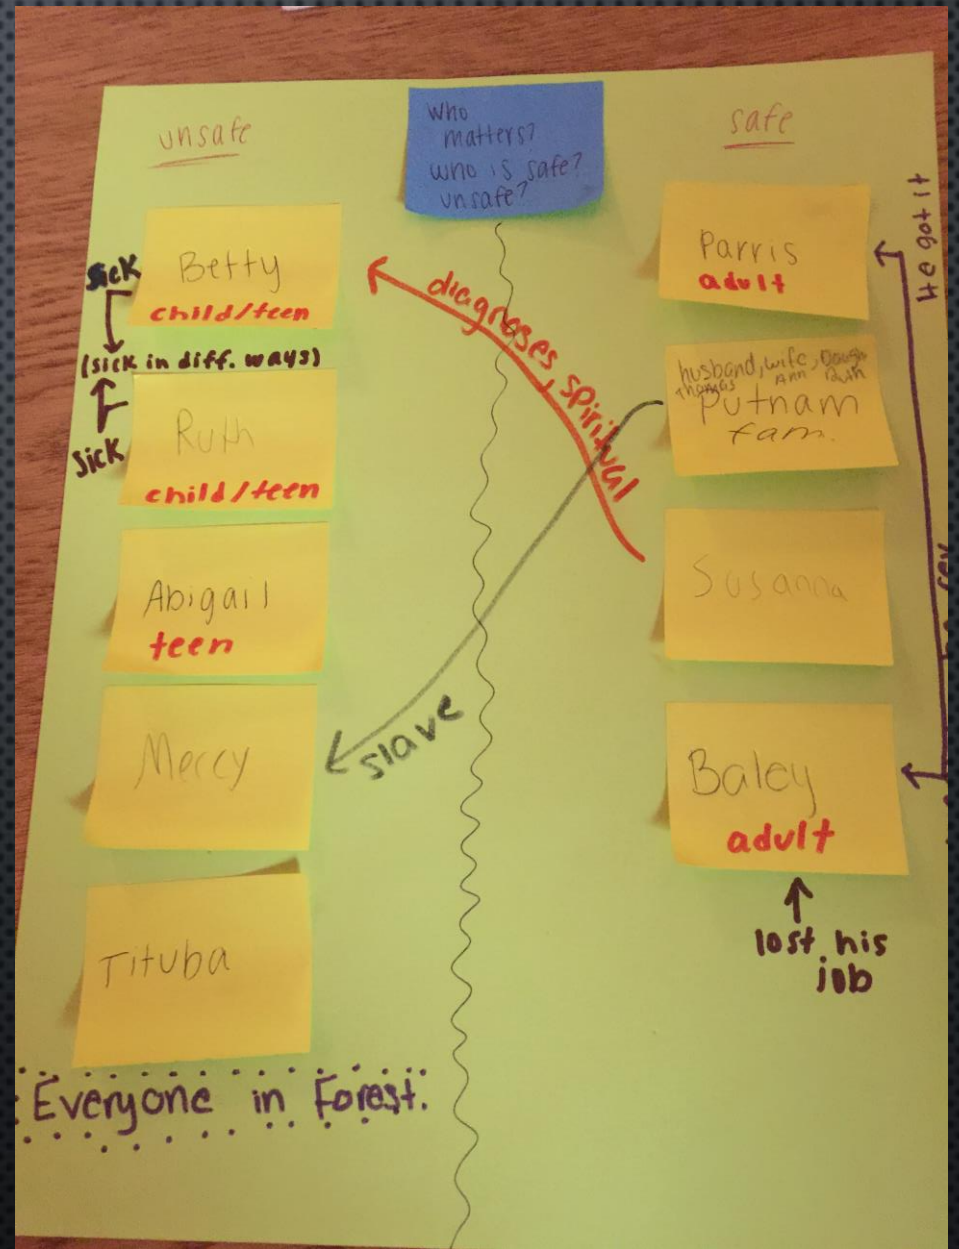 unsafe
Who
matters?
who is safe?
unsafe?
safe
Betty
child/teen
sick
(sick in diff. ways)
Ruth
child/teen
sick
Abigail
teen
Mercy
Tituba
Everyone in Forest.
diagnoses, spiritual
slave
Parris
adult
husband, wife,
Thomas Ann Ruth
Putnam
fam.
Susanna
Baley
adult
lost his
job
He got it